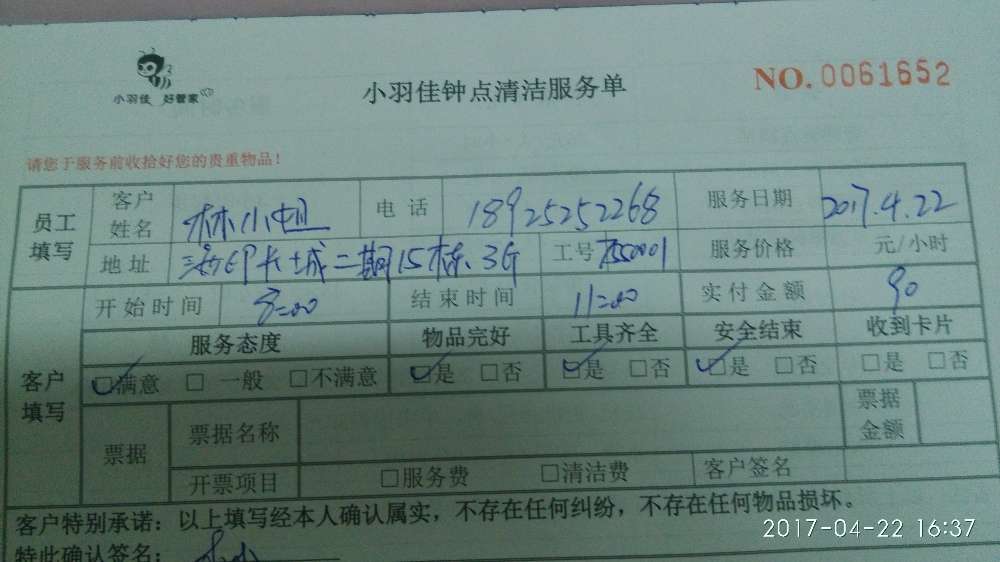 小羽佳 好管家
小羽佳钟点清洁服务单
NO. 0061652
请您于服务前收拾好您的贵重物品!
员工填写 客户姓名 林小 电话 18925252268 服务日期 2017.4.22
地址 长城二期15栋3G 工号 服务价格 元/小时
客户填写 开始时间 8:00 结束时间 11:00 实付金额 90
服务态度 物品完好 工具齐全 安全结束 收到卡片
☑满意 □一般 □不满意 ☑是 □否 ☑是 □否 ☑是 □否 □是 □否
票据 票据名称 票据金额
开票项目 □服务费 □清洁费 客户签名
客户特别承诺:以上填写经本人确认属实,不存在任何纠纷,不存在任何物品损坏。
特此确认签名:
2017-04-22 16:37